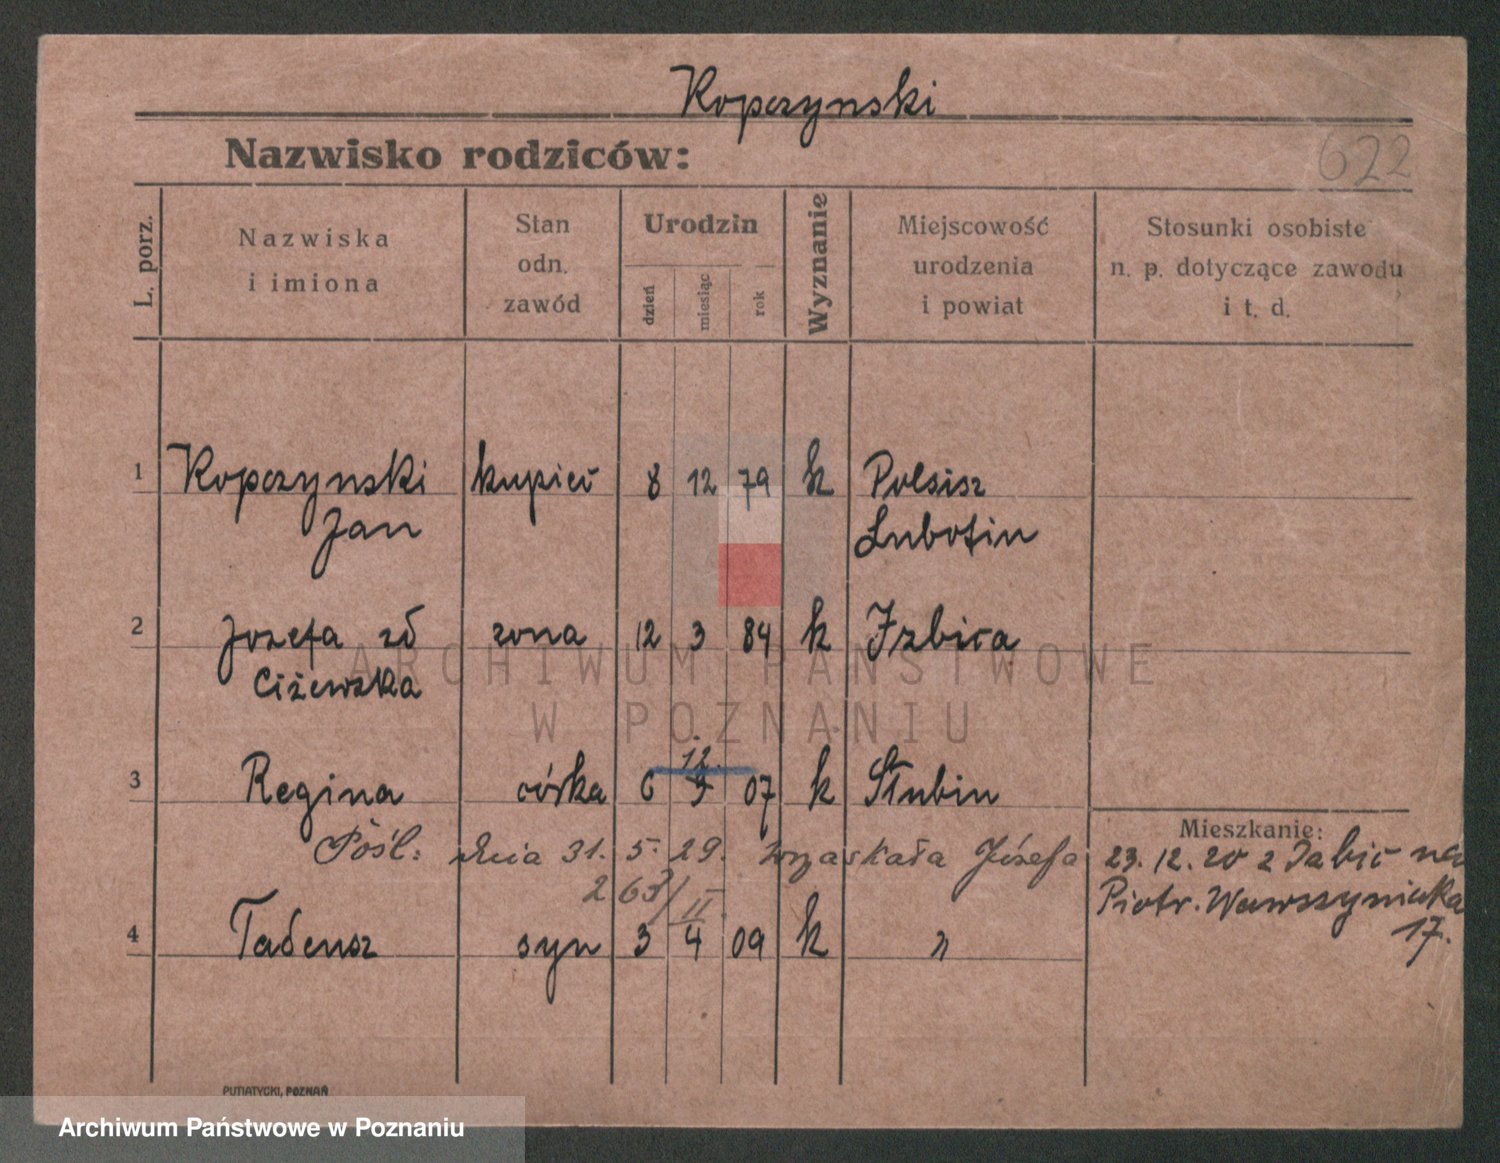 Kopczynski
Nazwisko rodziców:
622
L. porz.
Nazwiska
i imiona
Stan
odn.
zawód
Urodzin
dzień
miesiąc
rok
Wyznanie
Miejscowość
urodzenia
i powiat
Stosunki osobiste
n. p. dotyczące zawodu
i t. d.
1 Kopczynski kupiec 8 12 79 k Polsisz
Jan Lubotin
2 Jozefa zd żona 12 3 84 k Izbica
Ciżewska
ARCHIWUM PAŃSTWOWE
W POZNANIU
12.
3 Regina córka 6 3 07 k Słubin
Mieszkanie:
Pośl: dnia 31. 5. 29. Józefa
23. 12. 20 z na
263/II
Piotr. Wawrzyniaka
17.
4 Tadeusz syn 3 4 09 k "
PUTIATYCKI, POZNAŃ
Archiwum Państwowe w Poznaniu